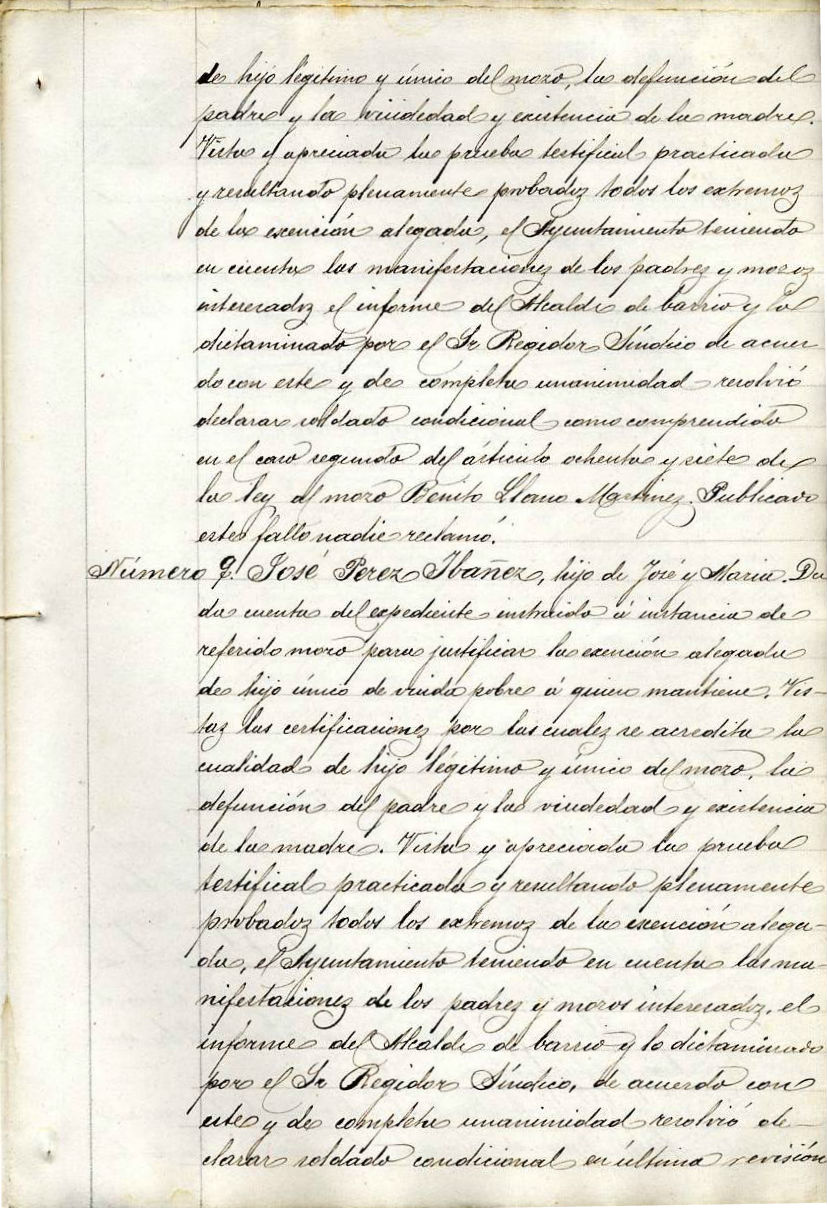 de hijo legitimo y único del mozo, la defunción del
padre y la viudedad y existencia de la madre.
Vista y apreciada la prueba testifical practicada
y resultando plenamente probados todos los extremos
de la exención alegada, el Ayuntamiento teniendo
en cuenta las manifestaciones de los padres y mozos
interesados el informe del Alcalde de barrio y lo
dictaminado por el Sr Regidor Síndico de acuer
do con este y de completa unanimidad resolvió
declarar soldado condicional como comprendido
en el caso segundo del artículo ochenta y siete de
la ley al mozo Benito Llano Martinez. Publicado
este fallo nadie reclamó.
Número 9. José Perez Ibañez, hijo de José y Maria. Da
da cuenta del expediente instruido á instancia de
referido mozo para justificar la exención alegada
de hijo único de viuda pobre á quien mantiene. Vis-
tas las certificaciones por las cuales se acredita la
cualidad de hijo légitimo y único del mozo, la
defunción del padre y la viudedad y existencia
de la madre. Vista y apreciada la prueba
testifical practicada y resultando plenamente
probados todos los extremos de la exención alega-
da, el Ayuntamiento teniendo en cuenta las ma-
nifestaciones de los padres y mozos interesados, el
informe del Alcalde de barrio y lo dictaminado
por el Sr Regidor Síndico, de acuerdo con
este y de completa unanimidad resolvió de-
clarar soldado condicional en última revisión